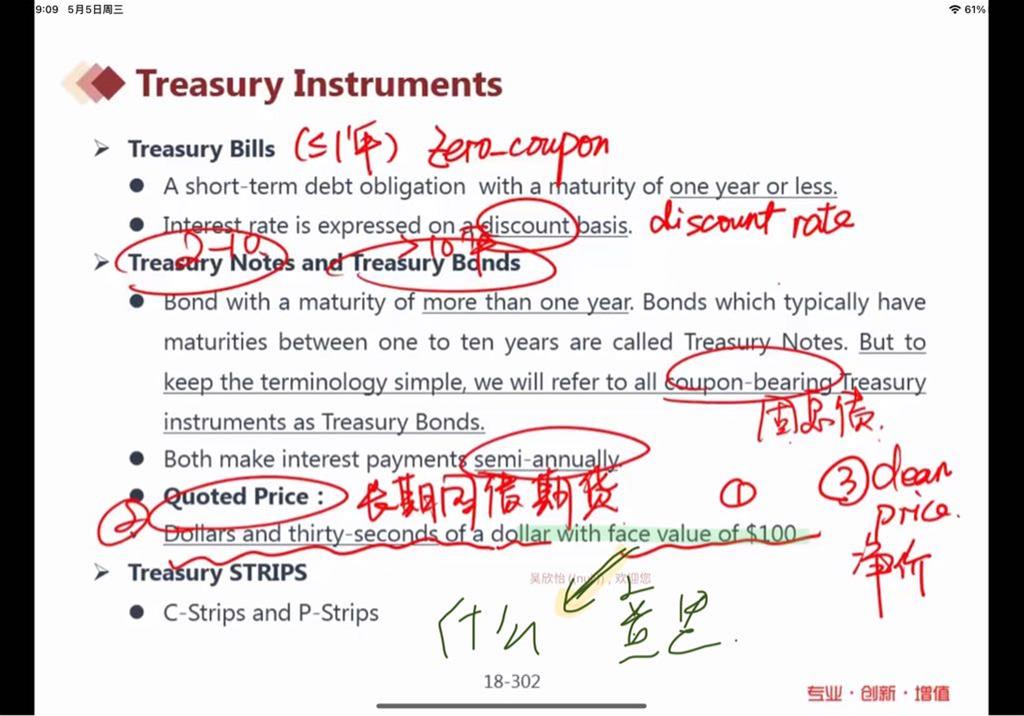 9:09 5月5日周三
61%
Treasury Instruments
➢ Treasury Bills (≤1年) zero-coupon
● A short-term debt obligation with a maturity of one year or less.
● Interest rate is expressed on a discount basis. discount rate
2-10 >10年
➢ Treasury Notes and Treasury Bonds
● Bond with a maturity of more than one year. Bonds which typically have
maturities between one to ten years are called Treasury Notes. But to
keep the terminology simple, we will refer to all coupon-bearing Treasury
instruments as Treasury Bonds.
固息债.
● Both make interest payments semi-annually.
● Quoted Price： 长期国债期货 ① ③ clean
price.
② Dollars and thirty-seconds of a dollar with face value of $100
净价
➢ Treasury STRIPS
吴欣怡 , 欢迎您
● C-Strips and P-Strips
什么意思.
18-302
专业·创新·增值